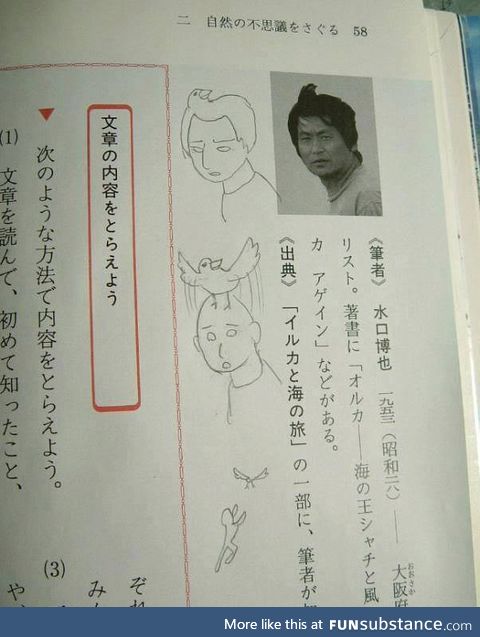 二 自然の不思議をさぐる 58
《筆者》 水口博也 一九五三(昭和二八)—— 大阪府
おおさか
リスト。著書に「オルカ——海の王シャチと風
カ アゲイン」などがある。
《出典》 「イルカと海の旅」の一部に、筆者が
文章の内容をとらえよう
▼ 次のような方法で内容をとらえよう。
(1) 文章を読んで、初めて知ったこと、
(3)
ぞれ
み
や、
More like this at FUNsubstance.com